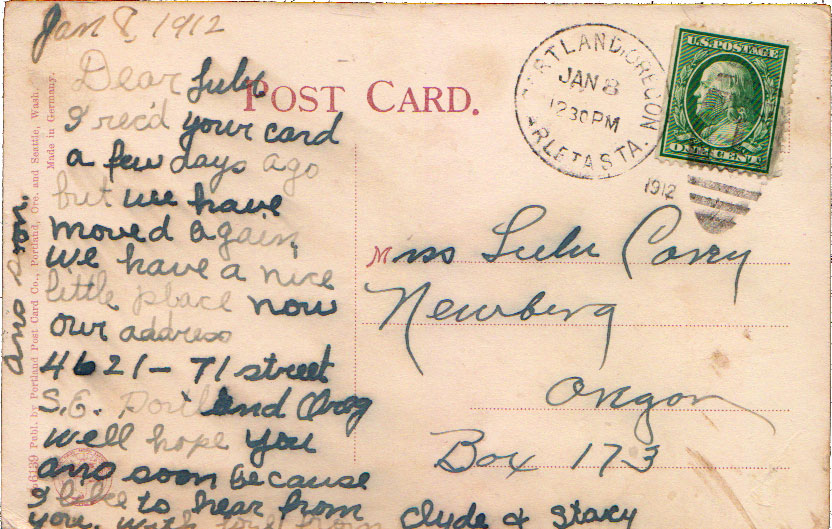 Jan 8, 1912
POST CARD.
Dear Lulu
I rec'd your card
a few days ago
but we have
moved again,
we have a nice
little place now
our address
4621 - 71 street
S.E. Portland Oreg
well hope you
ans soon because
I like to hear from
you. with love from Clyde & Stacy
ans soon.
6139 Publ. by Portland Post Card Co., Portland, Ore. and Seattle, Wash.
Made in Germany.
PORTLAND, OREGON
JAN 8
12 30 PM
1912
ARLETA STA.
U.S. POSTAGE
ONE CENT
Miss Lulu Carey
Newberg
Oregon
Box 173